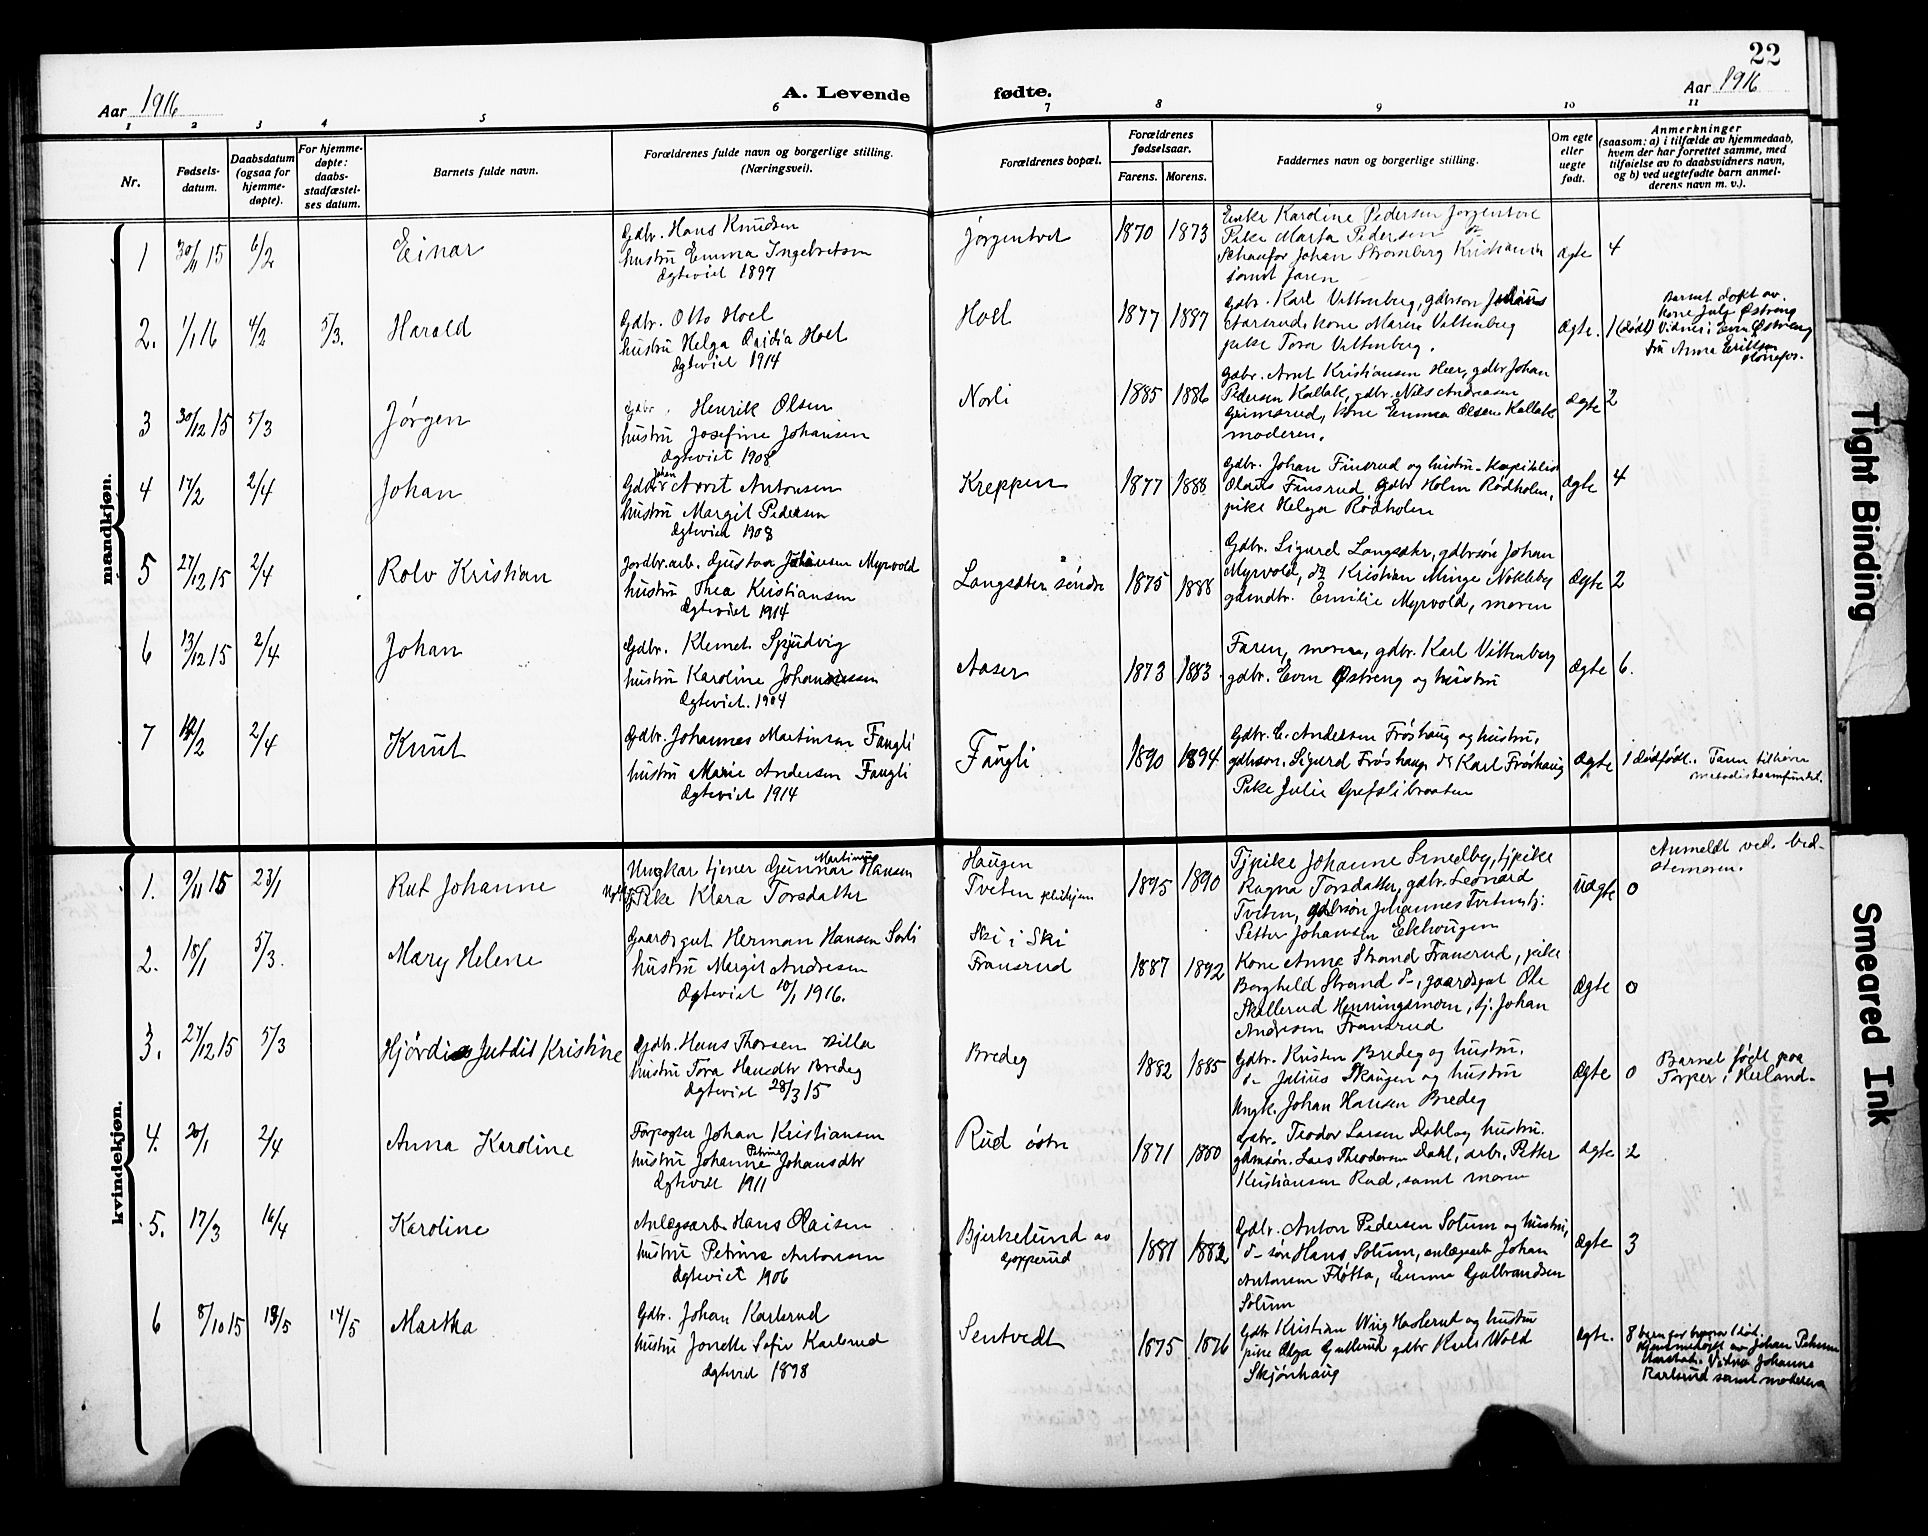 22
Aar 1916
A. Levende fødte.
Aar 1916
1 2 3 4 5 6 7 8 9 10 11
Nr.
Fødsels-
datum.
Daabsdatum
(ogsaa for
hjemme-
døpte).
For hjemme-
døpte:
daabs-
stadfæstel-
ses datum.
Barnets fulde navn.
Forældrenes fulde navn og borgerlige stilling.
(Næringsvei).
Forældrenes bopæl.
Forældrenes
fødselsaar.
Farens. Morens.
Faddernes navn og borgerlige stilling.
Om egte
eller
uegte
født.
Anmerkninger
(saasom: a) i tilfælde av hjemmedaab,
hvem der har forrettet samme, med
tilføielse av to daabsvidners navn,
og b) ved uegtefødte barn anmel-
derens navn m. v.).
maandkjøn.
1 30/11 15 6/2 Einar
Gdbr. Hans Knudsen
hustru Emma Ingebretsen
Ægteviet 1897
Jørgentvet 1870 1873
Enke Karoline Pedersen Jørgentvet
Pike Marta Pedersen
Schaufør Johan Strømberg Kristiania
samt faren
ægte 4
2. 1/1 16 4/2 5/3. Harald
Gdbr. Otto Hoel
hustru Helga Hoel
Ægteviet 1914
Hoel 1877 1887
Gdbr. Karl Vittenberg, gdbrsøn Julius
Aarsrud, kone Maren Vittenberg
pike Tora Vittenberg.
Ægte. 1 (død)
Barnet døpt av
kone Julie Østreng
Vidner: Even Østreng
fru Anna Eriksen
Hønefos.
3 30/12 15 5/3 Jørgen
Gdbr. Henrik Olsen
hustru Josefine Johansen
Ægteviet 1908
Norli 1885 1886
Gdbr. Arnt Kristiansen Heer, gdbr Johan
Pedersen Kallak, gdbr. Nils Andreasen
Grimsrud, kone Emma Olsen Kallak
moderen.
ægte 2
4 17/2 2/4 Johan
Gdbr Johan Arnt Antonsen
hustru Margit Pedersen
Ægteviet 1908
Kreppen 1877 1888
Gdbr. Johan Finsrud og hustru
Olaus Finsrud, Gdbr Holm Rødholm,
pike Helga Rødholm
ægte 4
5 27/12 15 2/4 Rolv Kristian
Jordbr.arb. Gustav Johansen Myrvold
hustru Thea Kristiansen
Ægteviet 1914
Langsæter søndre 1875 1888
Gdbr. Sigurd Langsæter, gdbrsøn Johan
Myrvold, do Kristian Minge Nokleby
gdmdtr. Emilie Myrvold, moren
Ægte 2
6 13/12 15 2/4 Johan
Gdbr. Klemet Spjudvig
hustru Karoline Johannessen
Ægteviet. 1904
Aaser 1873 1883.
Faren, moren, gdbr. Karl Vittenberg
gdbr. Even Østreng og hustru
Ægte 6.
7 19/2 2/4 Knut
Gdbr. Johannes Martinsen Faugli
hustru Marie Andersen Faugli
Ægteviet 1914
Faugli 1890 1894
Gdbr. C. Andersen Frøshaug og hustru,
gdbrson. Sigurd Frøshaug, do Karl Frøshaug
Pike Julie Grefslibraaten
Ægte 1 dødfødt. Faren tilhører
metodistsamfundet.
kvindekjøn.
1. 9/11 15 23/1 Rut Johanne
Ungkar tjener Gunnar Martinius Hansen
Pike Klara Torsdatter
Haugen
Tveten 1895 1890
Tjpike Johanne Smedby, tjpike
Ragna Torsdatter, gdbr. Leonard
Tveten, gdbrsøn Johannes Tveten, tj.
Petter Johansen Ekhougen
Uægte 0
Anmeldt ved bed-
stemoren.
2. 18/1 5/3. Mary Helene
Gaardsgut Herman Hansen Sorli
hustru Margit Andresen
Ægteviet 10/1 1916.
Ski i Ski
Fransrud 1887 1892
Kone Anna Strand Fransrud, pike
Borghild Strand do, gaardsgut Ole
Skallerud Henningsmoen, tj. Johan
Andresen Fransrud
Ægte 0
3. 27/12 15 5/3 Hjørdis Jutdit Kristine
Gdbr. Hans Thorsen
hustru Tora Hansdtr Bredeg
Ægteviet 28/3 15
Bredeg 1882 1885
Gdbr. Kristen Bredeg og hustru.
do Julius Skaugen og hustru
Ungk. Johan Hansen Bredeg
Ægte 0
Barnet født paa
Torper i Heiland.
4. 20/1 2/4 Anna Karoline
Forpagter Johan Kristiansen
hustru Johanne Petrine Johansdtr
Ægteviet 1911
Rud østre 1871 1880
Gdbr. Teodor Larsen Dahl og hustru.
gdmsøn. Lars Theodorsen Dahl, arb. Petter
Kristiansen Rud, samt moren
ægte 2
5. 17/3 16/4 Karoline
Anlægsarb. Hans Olaisen
hustru Petrine Antonsen
Ægteviet 1906
Bjerkelund av
Gopperud 1881 1882
Gdbr. Anton Pedersen Solum og hustru,
do søn Hans Solum, anlægsarb Johan
Antonsen Fløtta, Emma Gulbrandsen
Solum
Ægte 3
6 8/10 15 13/5 14/5 Martha
Gdbr. Johan Karlsrud
hustru Jonette Sofie Karlsrud
Ægteviet 1898
Sentvedt 1875 1876
Gdbr Kristian Wiig Haslerud og hustru
pike Olga Gullerud gdbr Karl Wold
Skjønhaug
Ægte. 8
Hjemmedøpt av Johan
Vidne Johanne
Karlsrud samt moderen
Tight Binding
Smeared Ink